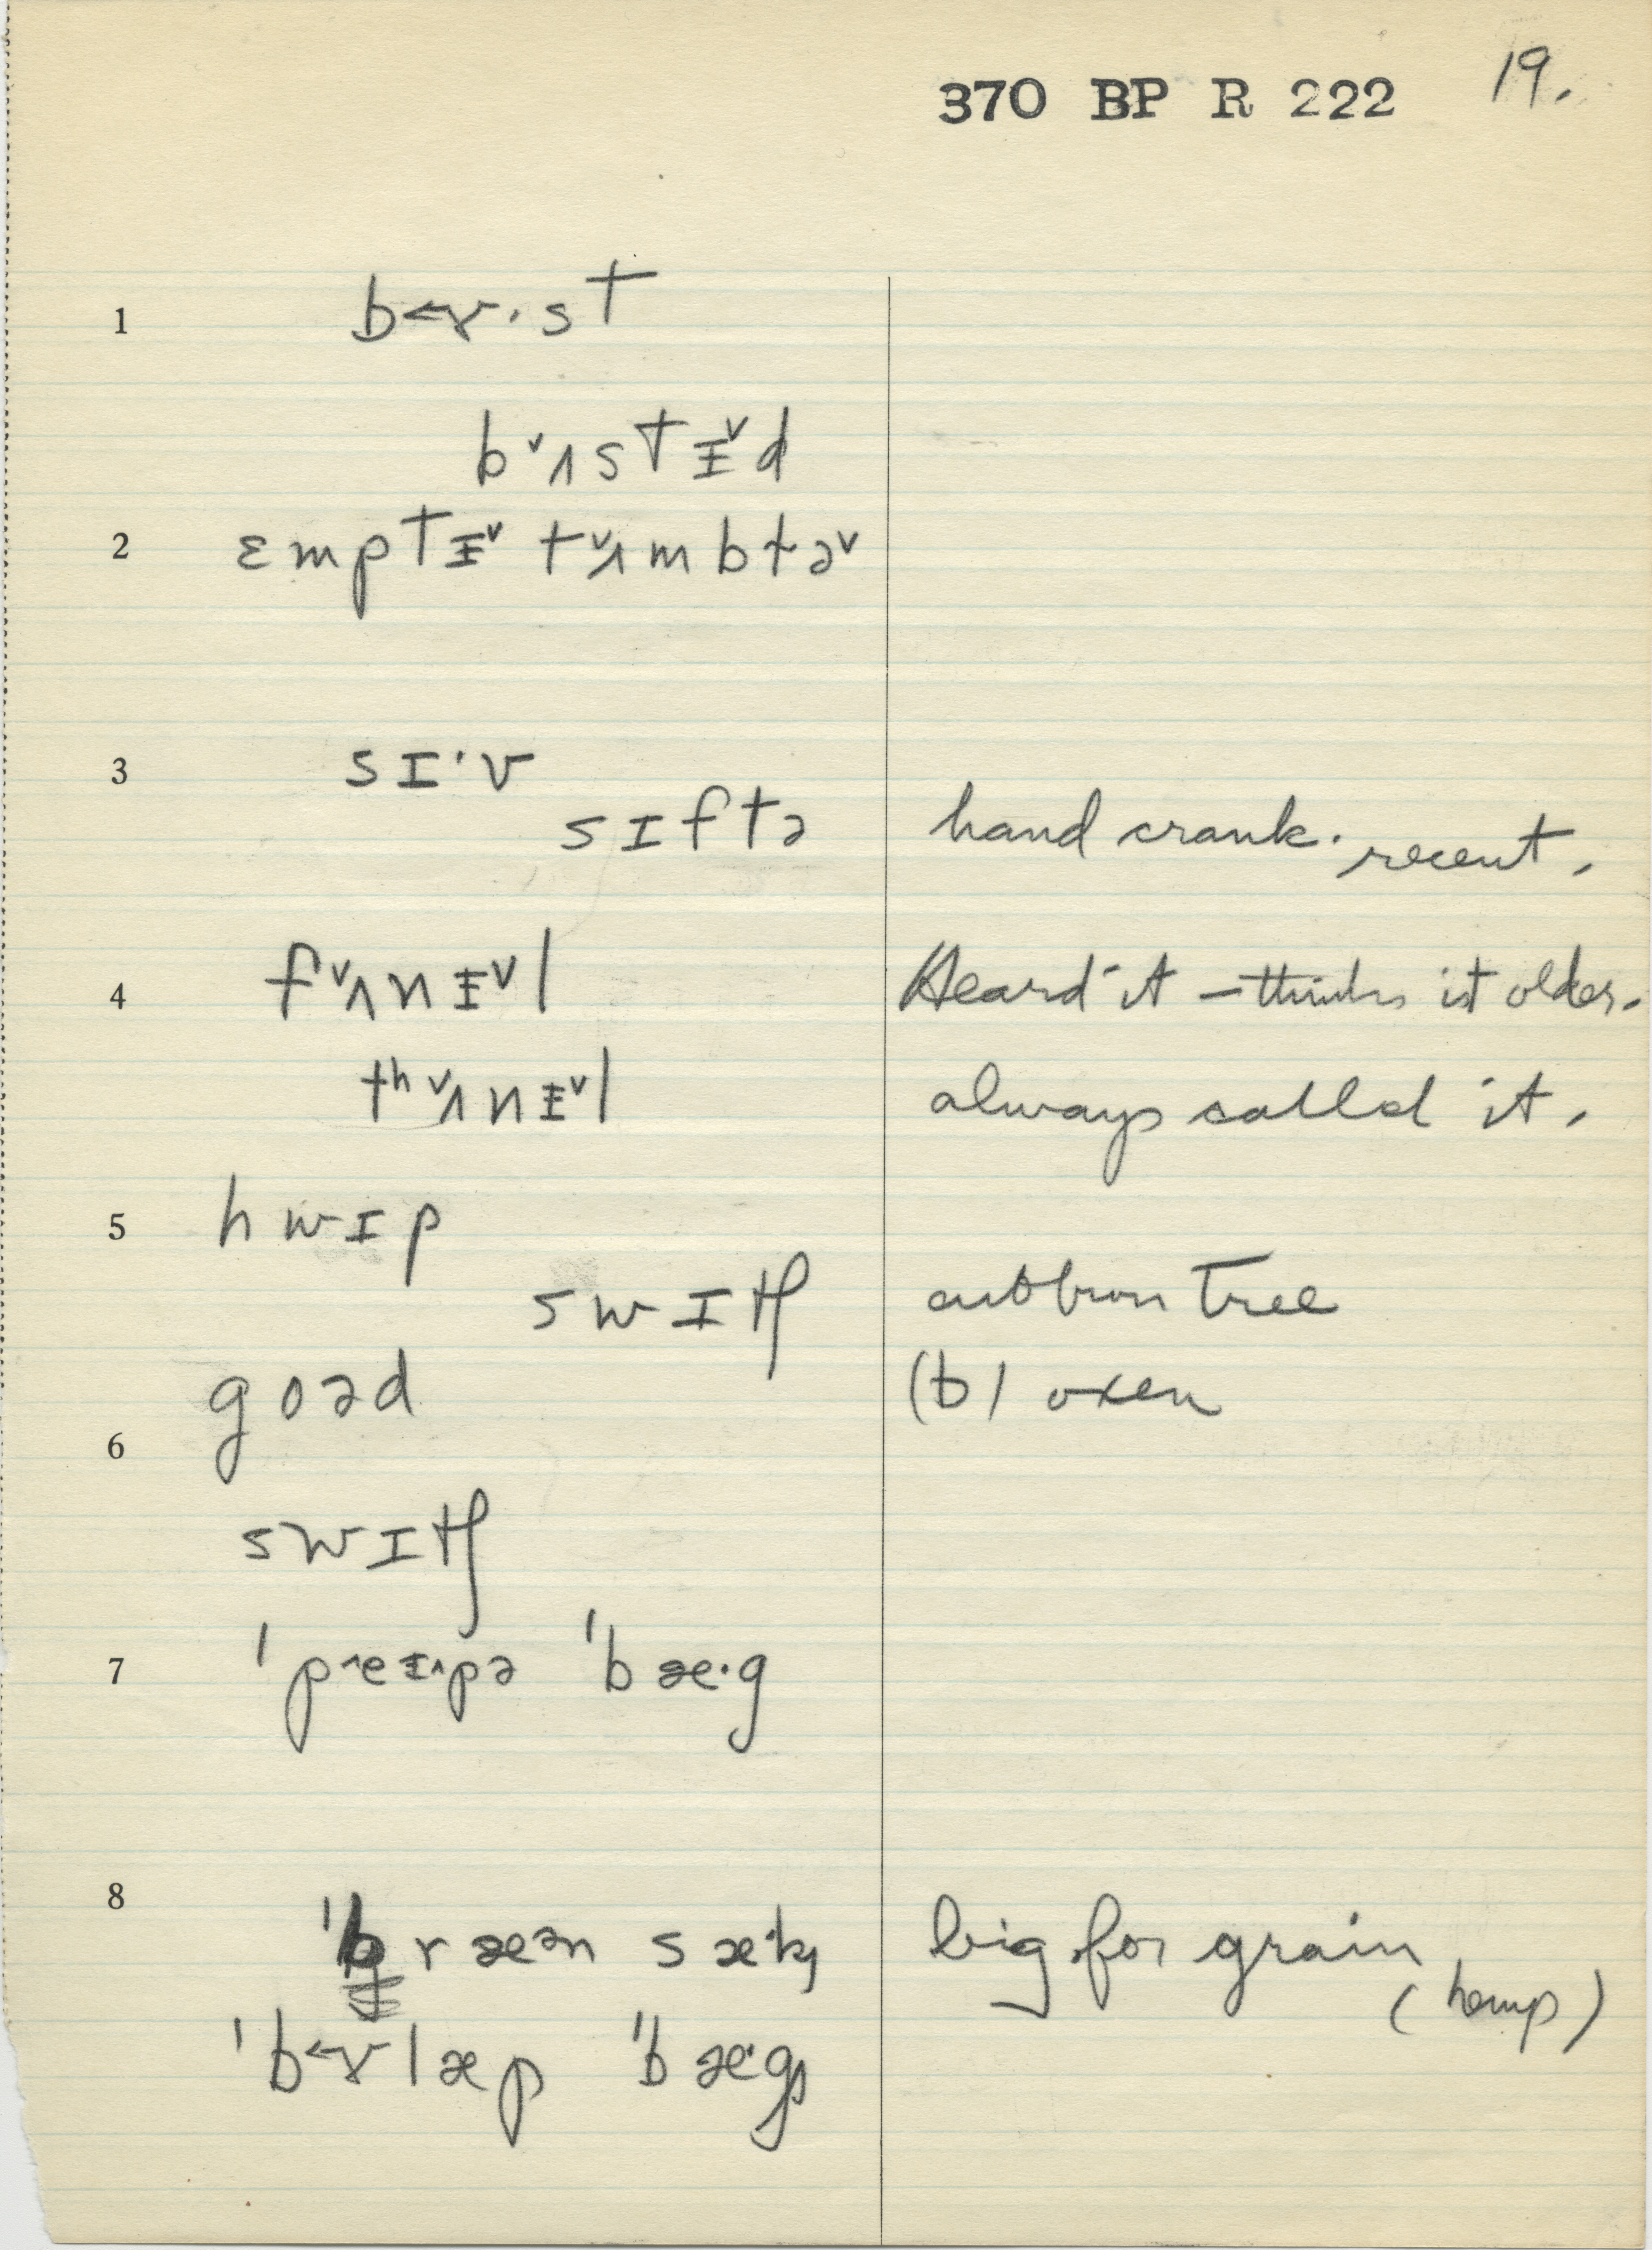 370 BP R 222 19.
1 b˂ɤ·st
b˅ʌstɨ˅d
2 ɛmptɨ˅ t˅ʌmbɫə˅
3 sɪ·v
sɪftə hand crank. recent.
4 f˅ʌnɨ˅l Heard it – thinks it older.
tʰ˅ʌnɨ˅l always called it.
5 hwɪp
swɪtʃ tree
goəd (b) oxen
6
swɪtʃ
7 ˈp˄eɨ˄pə ˈbæ·g
8 græən sæ·k big for grain
(hemp)
ˈb˂ɤlæp ˈbæ·g